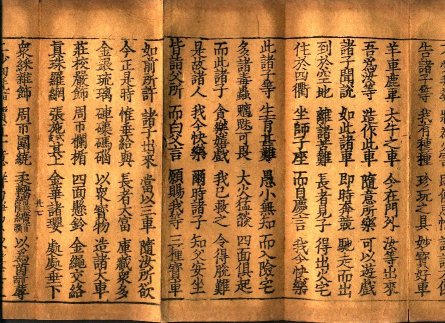 告諸子等 我有種種 珍玩之具 妙寶好車
羊車鹿車 大牛之車 今在門外 汝等出來
吾為汝等 造作此車 隨意所樂 可以遊戲
諸子聞說 如此諸車 即時奔競 馳走而出
到於空地 離諸苦難 長者見子 得出火宅
住於四衢 坐師子座 而自慶言 我今快樂
此諸子等 生育甚難 愚小無知 而入險宅
多諸毒蟲 魑魅可畏 大火猛燄 四面俱起
而此諸子 貪樂嬉戲 我已救之 令得脫難
是故諸人 我今快樂 爾時諸子 知父安坐
皆詣父所 而白父言 願賜我等 三種寶車
如前所許 諸子出來 當以三車 隨汝所欲
今正是時 惟垂給與 長者大富 庫藏眾多
金銀琉璃 硨磲碼碯 以眾寶物 造諸大車
莊校嚴飾 周帀欄楯 四面懸鈴 金繩交絡
真珠羅網 張施其上 金華諸瓔 處處垂下
衆綵雜飾 周帀圍繞 柔輭繒纊 以為茵蓐